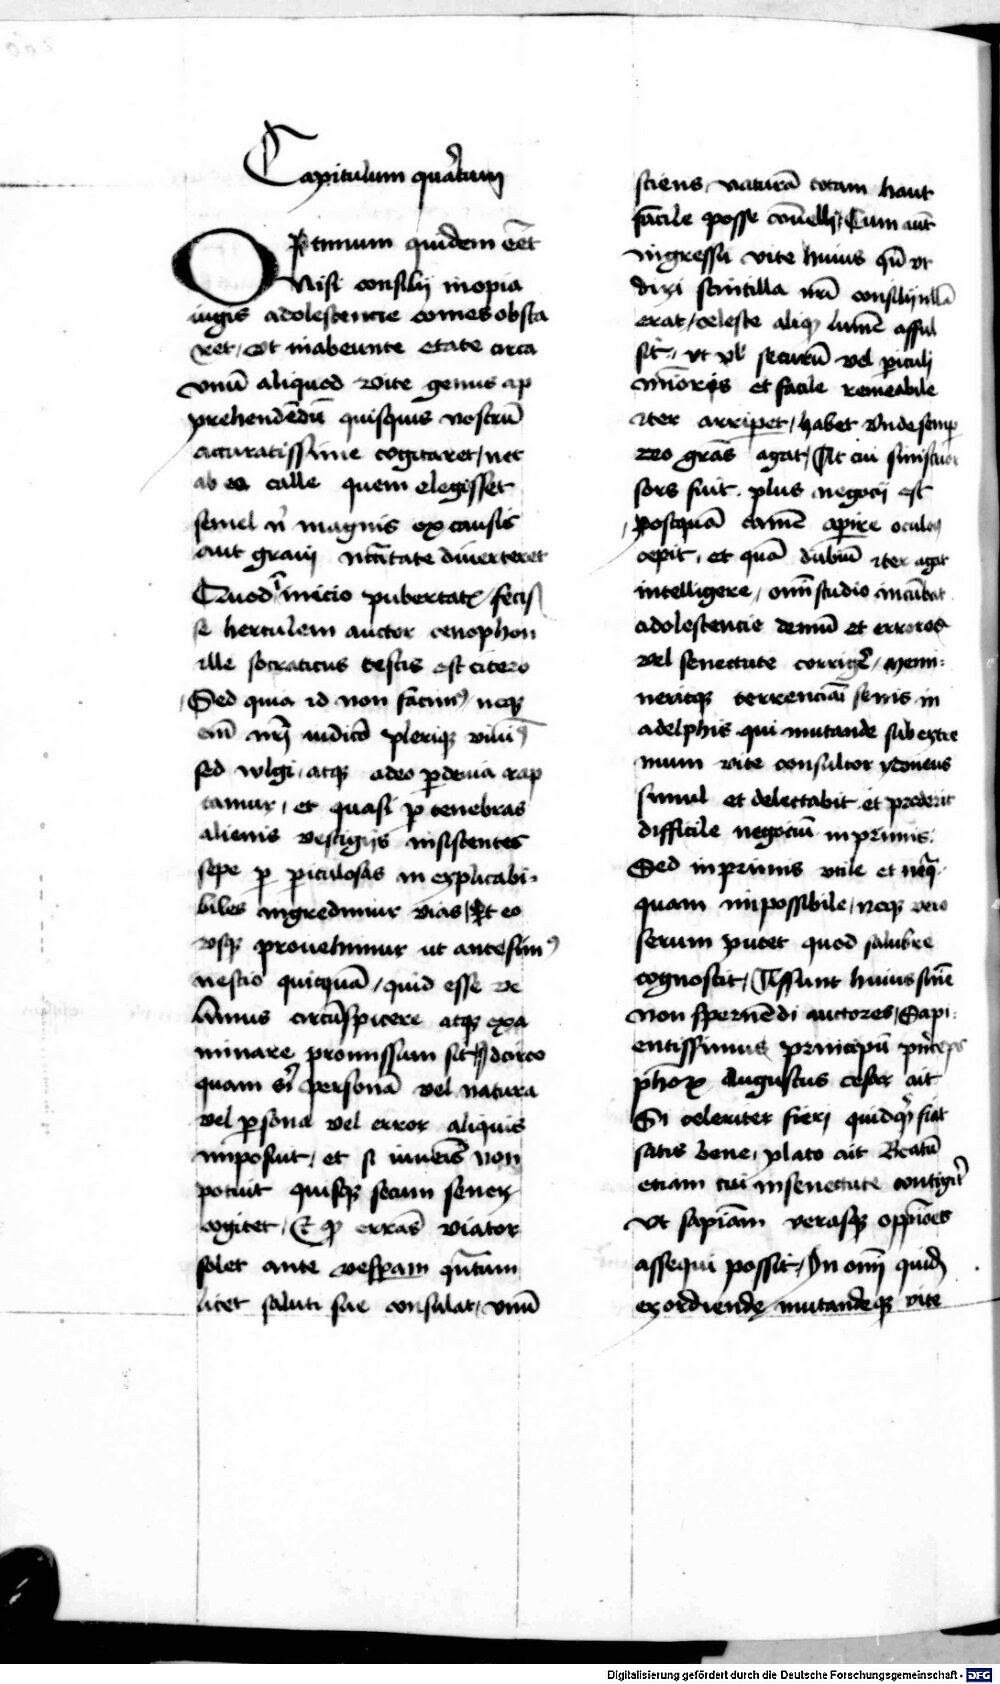 Capitulum quartum
Optimum quidem eēt
Nisi consilij inopia
iugis adolescencie comes obsta
ret / Vt in abeunte etate circa
vnū aliquod vite genus ap
prehendēdū quisquis nostrū
accuratissime cogitaret / nec
ab eo calle quem elegisset
semel nͥ magnis ex causis
aut graui nc̄citate diuerteret
Quod inicio pubertatꝭ fecis
se herculem auctor cenophon
ille socraticus testis est cicero
Sed quia id non facimꝰ neqꝫ
em̄ nr̄j iudicō pleriqꝫ viuīꝰ
sed wlgi / atqꝫ adeo ꝑ deuia rap
tamur / et quasi ꝑ tenebras
alienis vestigijs insistentes
sepe ꝑ ꝑiculosas inexplicabi-
biles ingredimur vias / Et eo
vsqꝫ prouehimur ut ante simꝰ
nescio quicquā / quid esse ve
limus circūspicere atqꝫ exa
minare promissum sit / Idcirco
quam sͥ personā vel natura
vel ꝑsona vel error aliquis
imposuit / et si iuuēis non
potuit quisqꝫ secum senex
cogitet / Et qͦ errās viator
solet ante vesꝑam qn̄tum
licet saluti sue consulat / vnū
sciens naturā totam haut
facile posse cōuelli / Cum aūt
ingressu vite huius qn̄ vt
dixi scintilla nr̄i consilij nllā
erat / celeste aliqͦ lumē afful
sit / vt vl̓ securū vel ꝑiculi
mīoris et facile remeabile
iter arriperet / habet vnde semꝑ
deo grās agat / At cui sinistrior
sors fuit plus negocij est
Postquā tamē aperire oculos
cepit / et quā dubiū iter agat
intelligere / omī studio incūbat
adolescencie demū et errores
vel senectute corrigeͬ / Memi-
neritqꝫ terrencianī senis in
adelphis qui mutande sub extre
mum vite consultor ydoneus
simul et delectabit et proderit
difficile negociū inprimis.
Sed inprimis vtile et neqͣ
quam impossibile / neqꝫ vero
serum putet quod salubre
cognoscit / Assunt huius sn̄ie
non spernēdi auctores / Sapi-
entissimus principū prīceps
ph̄orꝝ Augustus cesar ait
Si celeriter fieri quidqͥd fiat
satis bene / plato ait Beatū
etiam cui in senectute contigͥt
Vt sapiām verasqꝫ oppīoēs
assequi possit / In omī quidē
exordiende mutandeqꝫ vite
Digitalisierung gefördert durch die Deutsche Forschungsgemeinschaft - DFG